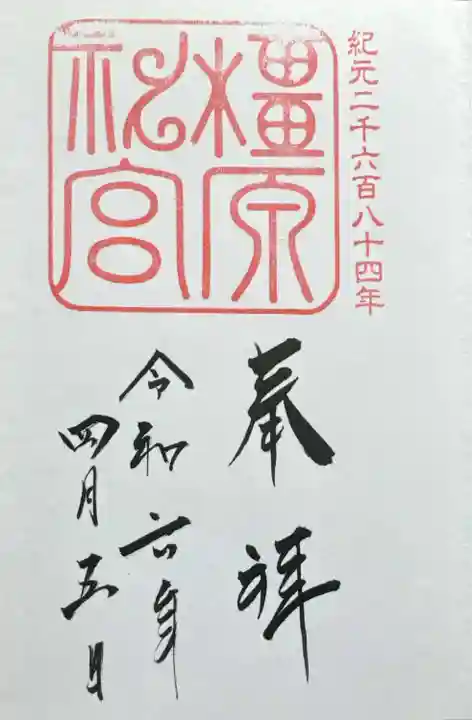 紀元二千六百八十四年
橿原
神宮
奉拝
令和六年
四月五日